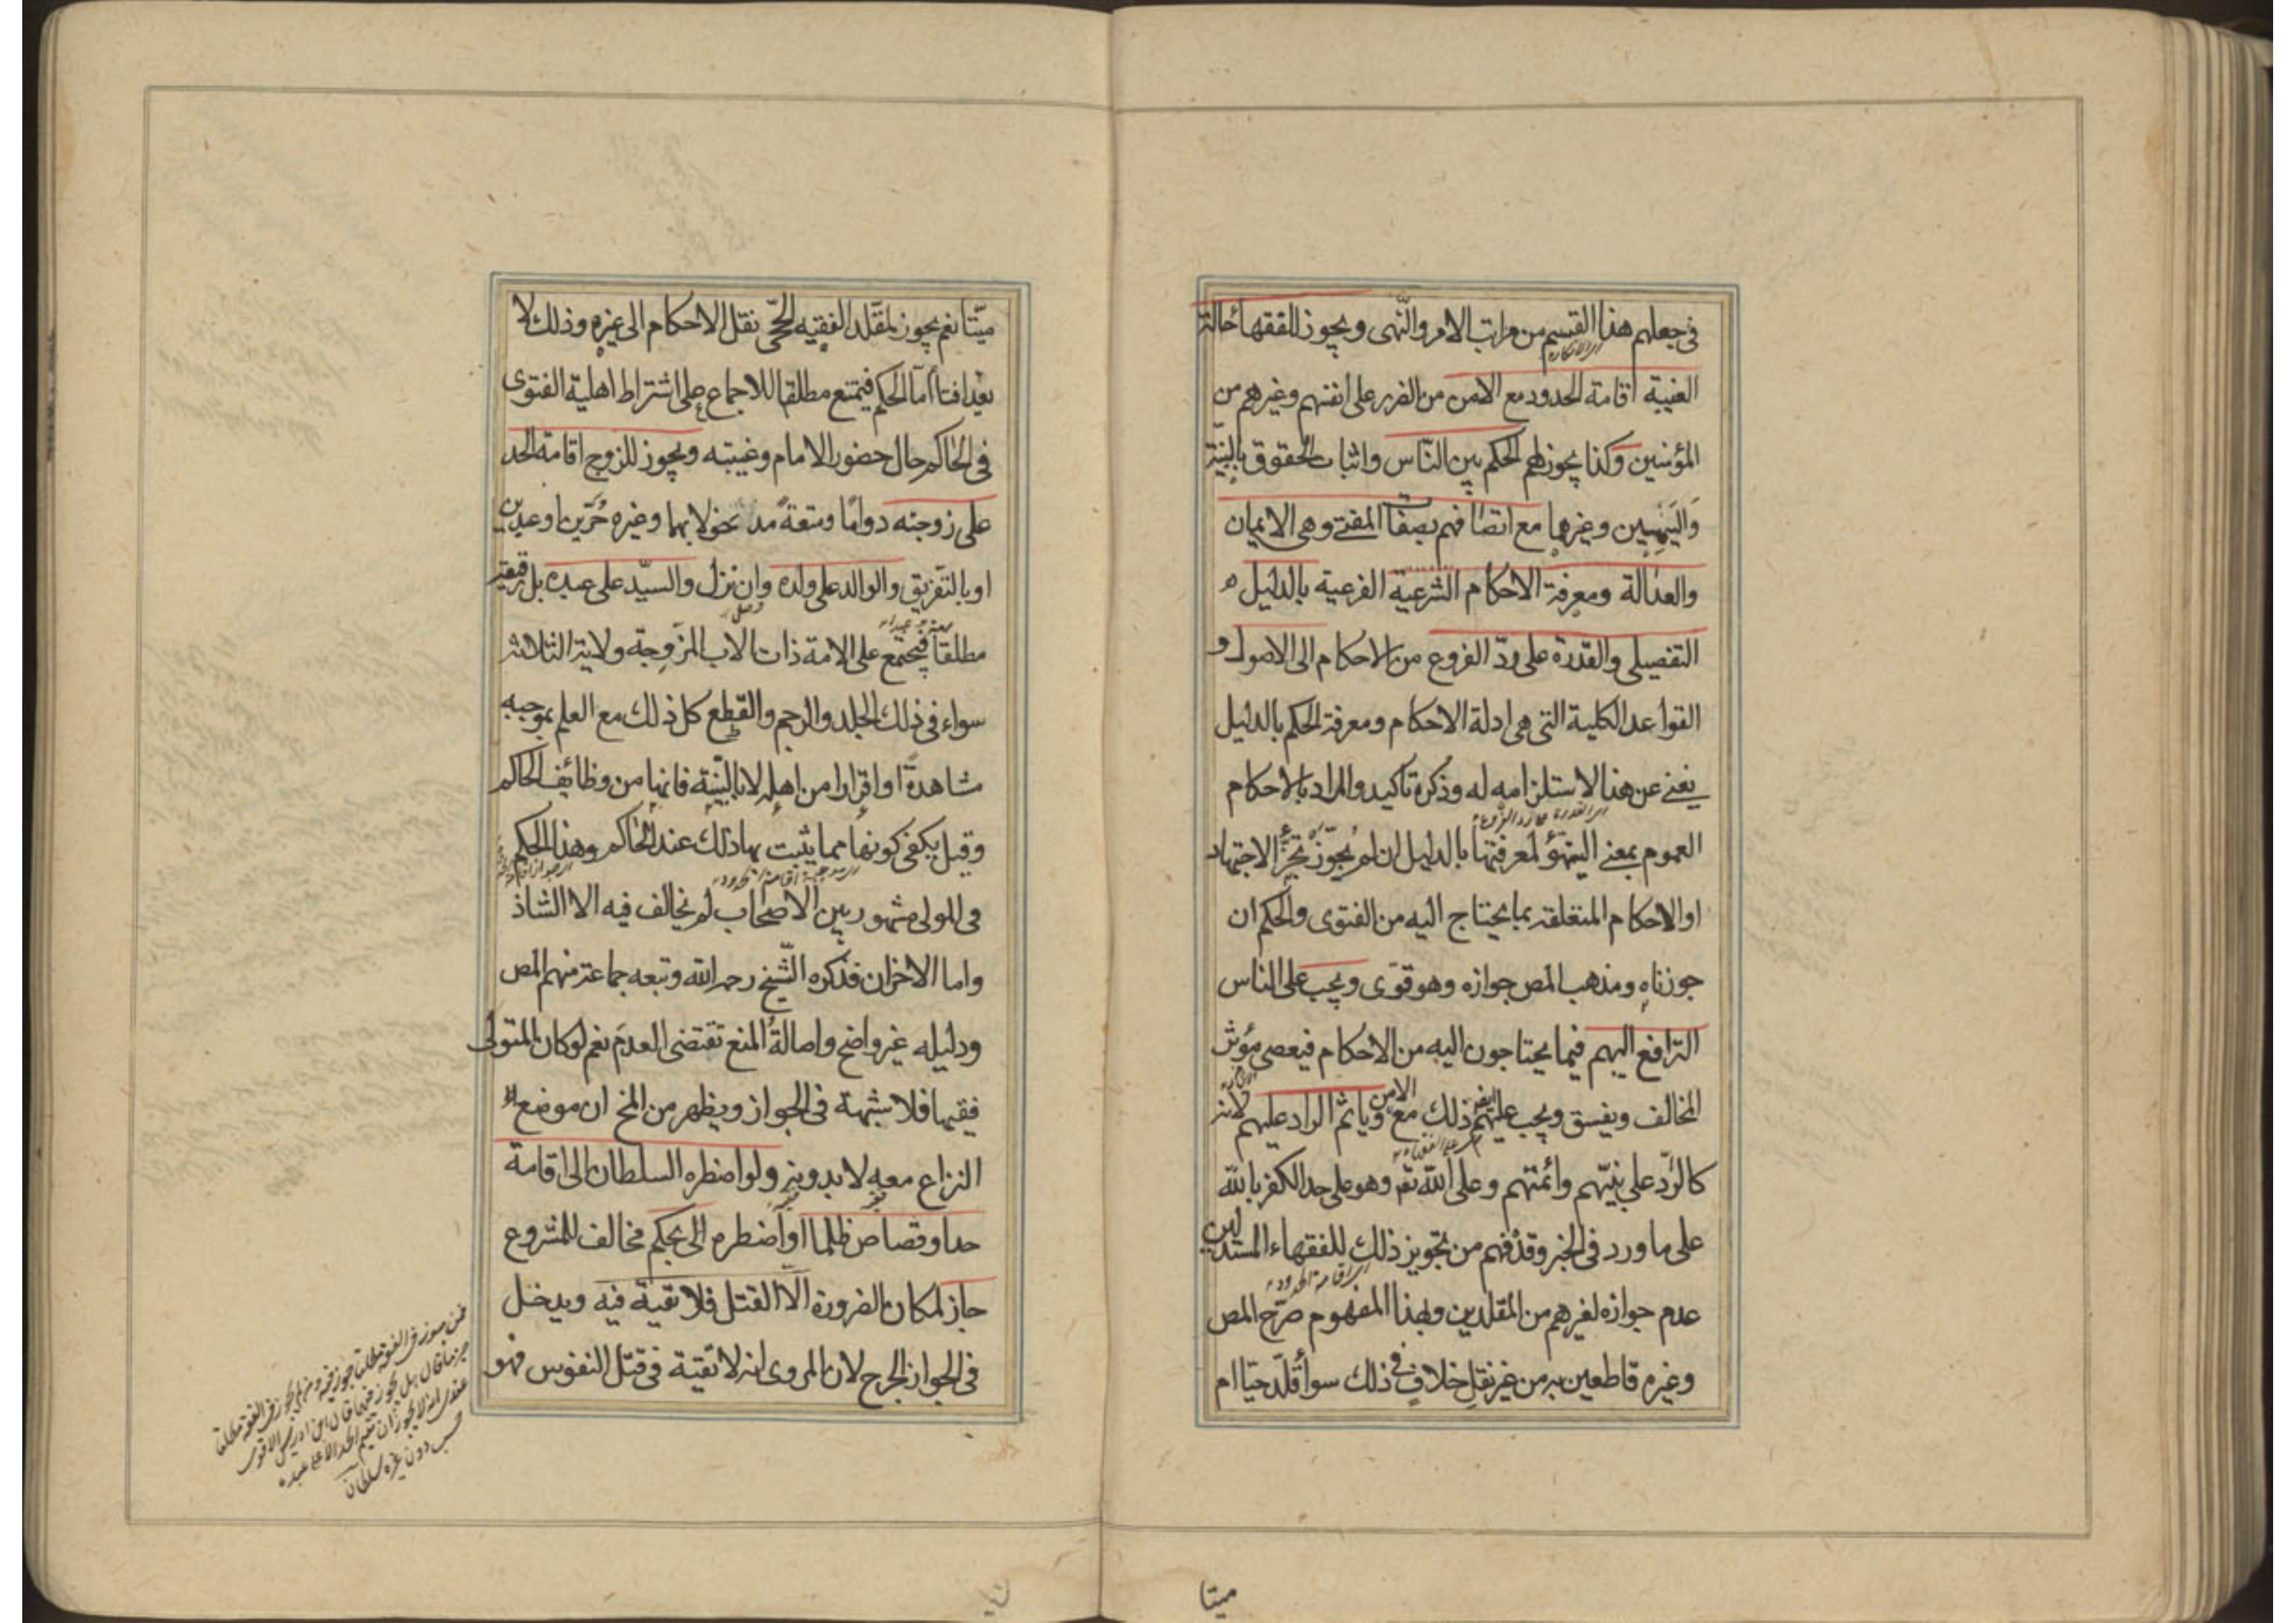 في جعلهم هذا القسم من مراتب الامر والنّهى ويجوز للفقهاء حالة
اى الانكار
الغيبة اقامة الحدود مع الامن من الضرر على انفسهم وغيرهم من
المؤمنين وكذا يجوز لهم الحكم بين النّاس واثبات الحقوق بالبيّنة
وَاليَمِين وغيرها مع اتصافهم بصفات المفتى وهى الايمان
والعدالة ومعرفة الاحكام الشرعيّة الفرعية بالدليل
التفصيلى والقدرة على ردّ الفروع من الاحكام الى الاصول و
القواعد الكلية التى هى ادلة الاحكام ومعرفة الحكم بالدليل
يغنى عن هذا لاستلزامه له وذكره تاكيد والمراد بالاحكام
العموم بمعنى التهيؤ لمعرفتها بالدليل ان لم يجوّز تجزّى الاجتهاد
او الاحكام المتعلقة بما يحتاج اليه من الفتوى والحكم ان
جوزناه ومذهب المص جوازه وهو قوى ويجب على الناس
الترافع اليهم فيما يحتاجون اليه من الاحكام فيعصى مؤثر
المخالف ويفسق ويجب عليهم ايضا ذلك مع الامن وياثم الراد عليهم لانه
كالرّد على نبيّهم وائمتهم وعلى الله تعم وهو على حد الكفر بالله
على ما ورد فى الخبر وقد فهم من تجويز ذلك للفقهاء المستدلين
اى اقامة الحدود
عدم جوازه لغيرهم من المقلدين وبهذا المفهوم صرّح المص
وغيره قاطعين به من غير نقل خلاف فى ذلك سواء قلّد حيّا ام
ميتا
ميّتا نعم يجوز لمقلد الفقيه الحىّ نقل الاحكام الى غيره وذلك لا
يعد افتاءً امّا الحكم فيمتنع مطلقا للاجماع على اشتراط اهلية الفتوى
فى الحاكم حال حضور الامام وغيبته ويجوز للزوج اقامة الحد
على زوجته دوامًا ومتعةً مدخولا بها وغيره حُرّين او عبدين
او بالتفريق والوالد على ولده وان نزل والسيّد على عبده بل رقيقه
مطلقا فيجتمع على الامة ذات الاب المزوجة ولاية الثلاثة
سواء فى ذلك الجلد والرجم والقطع كل ذلك مع العلم بموجبه
مشاهدةً او اقرارا من اهله لا بالبيّنة فانها من وظائف الحاكم
وقيل يكفى كونها مما يثبت بها ذلك عند الحاكم وهذا الحكم
فى المولى مشهور بين الاصحاب لم يخالف فيه الا الشاذ
واما الاخران فذكره الشّيخ رحمه الله وتبعه جماعة منهم المص
ودليله غير واضح واصالةُ المنع تقتضى العدمَ نعم لو كان المتولى
فقيها فلا شبهة فى الجواز ويظهر من المخ ان موضع
النزاع معه لا بدونه ولو اضطره السلطان الى اقامة
حد او قصاص ظلما او اضطره الى بحكم مخالف للمشروع
جاز لمكان الضرورة الّا القتل فلا تقية فيه ويدخل
فى الجواز الجرح لان المروى انه لا تقية فى قتل النفوس فهو